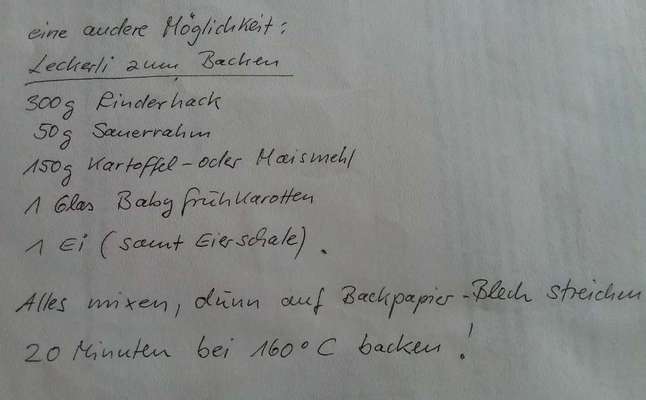 eine andere Möglichkeit:
Leckerli zum Backen
300g Rinderhack
50g Sauerrahm
150g Kartoffel- oder Maismehl
1 Glas Baby frühkarotten
1 Ei (samt Eierschale).
Alles mixen, dünn auf Backpapier-Blech streichen
20 Minuten bei 160°C backen!